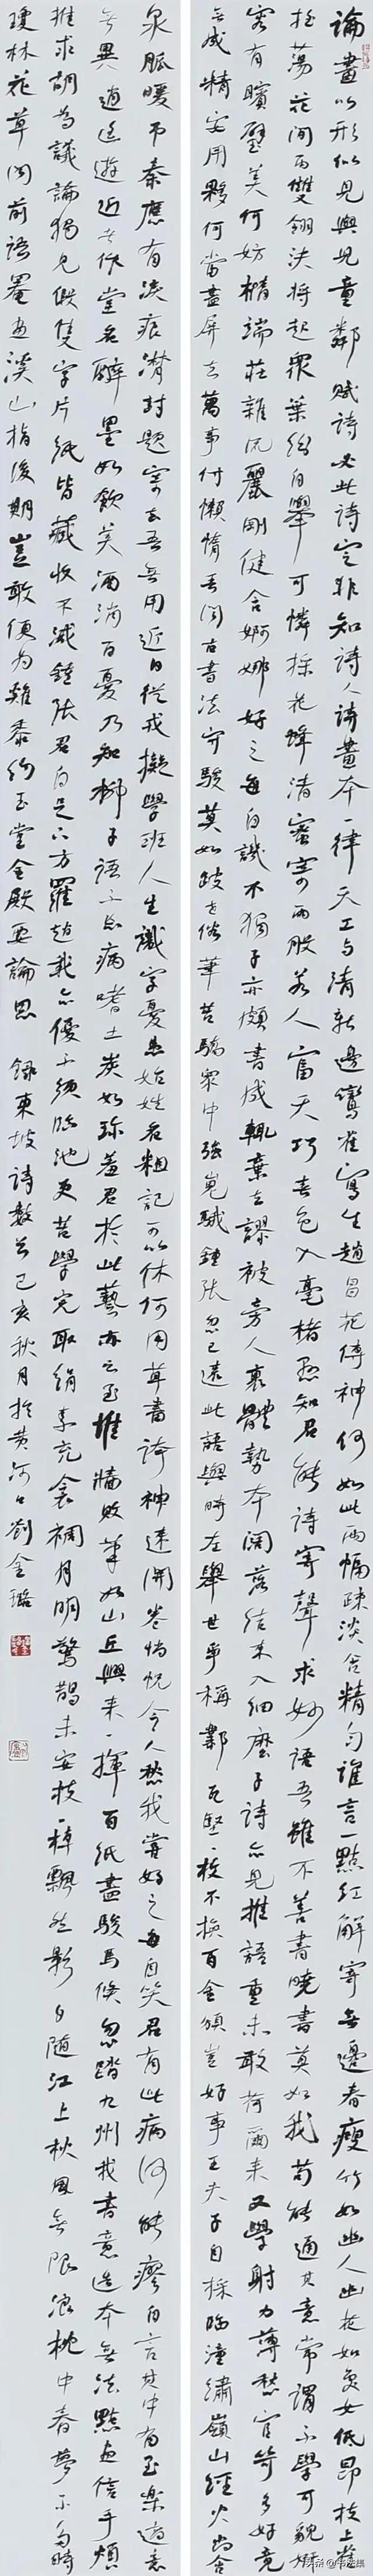 論畫以形似見與兒童鄰賦詩必此詩定非知詩人詩畫本一律天工与清新邊鸞雀寫生趙昌花傳神何如此兩幅疎淡含精勻誰言一點紅解寄無邊春瘦竹如幽人幽花如處女低昂枝上雀
搖蕩花間雨雙翎決將起眾葉紛自舉可憐採花蜂清蜜寄兩股若人富天巧春色入毫楮懸知君能詩寄聲求妙語吾雖不善書曉書莫如我苟能通其意常謂不學可貌妍
容有矉璧美何妨橢端莊雜流麗剛健含婀娜好之每自譏不獨子亦頗書成輒棄去謬被旁人裹體勢本闊落結束入細麼子詩亦見推語重未敢荷爾來又學射力薄愁官笴多好竟
無成精安用夥何當盡屏去萬事付懶惰吾聞古書法守駿莫如跛世俗筆苦驕眾中強嵬騀鍾張忽已遠此語與時左舉世爭稱鄴瓦堅一枚不換百金頒豈好事王夫子自採臨潼繡嶺山經火尚含
泉脈暖弔秦應有淚痕潸封題寄去吾無用近日從戎擬學班人生識字憂患始姓名粗記可以休何用草書誇神速開卷惝怳令人愁我嘗好之每自笑君有此病何能瘳自言其中有至樂適意
無異逍遙遊近者作堂名醉墨如飲美酒消百憂乃知柳子語不妄病嗜土炭如珍羞君於此藝亦云至堆牆敗筆如山丘興來一揮百紙盡駿馬倏忽踏九州我書意造本無法點畫信手煩
推求胡為議論獨見假隻字片紙皆藏收不減鍾張君自足下方羅趙我亦優不須臨池更苦學完取絹素充衾裯月明驚鵲未安枝一棹飄然影自隨江上秋風無限浪枕中春夢不多時
瓊林花草聞前語罨畫溪山指後期豈敢便為雞黍約玉堂金殿要論思 錄東坡詩數首己亥秋月於黄河口劉金璐